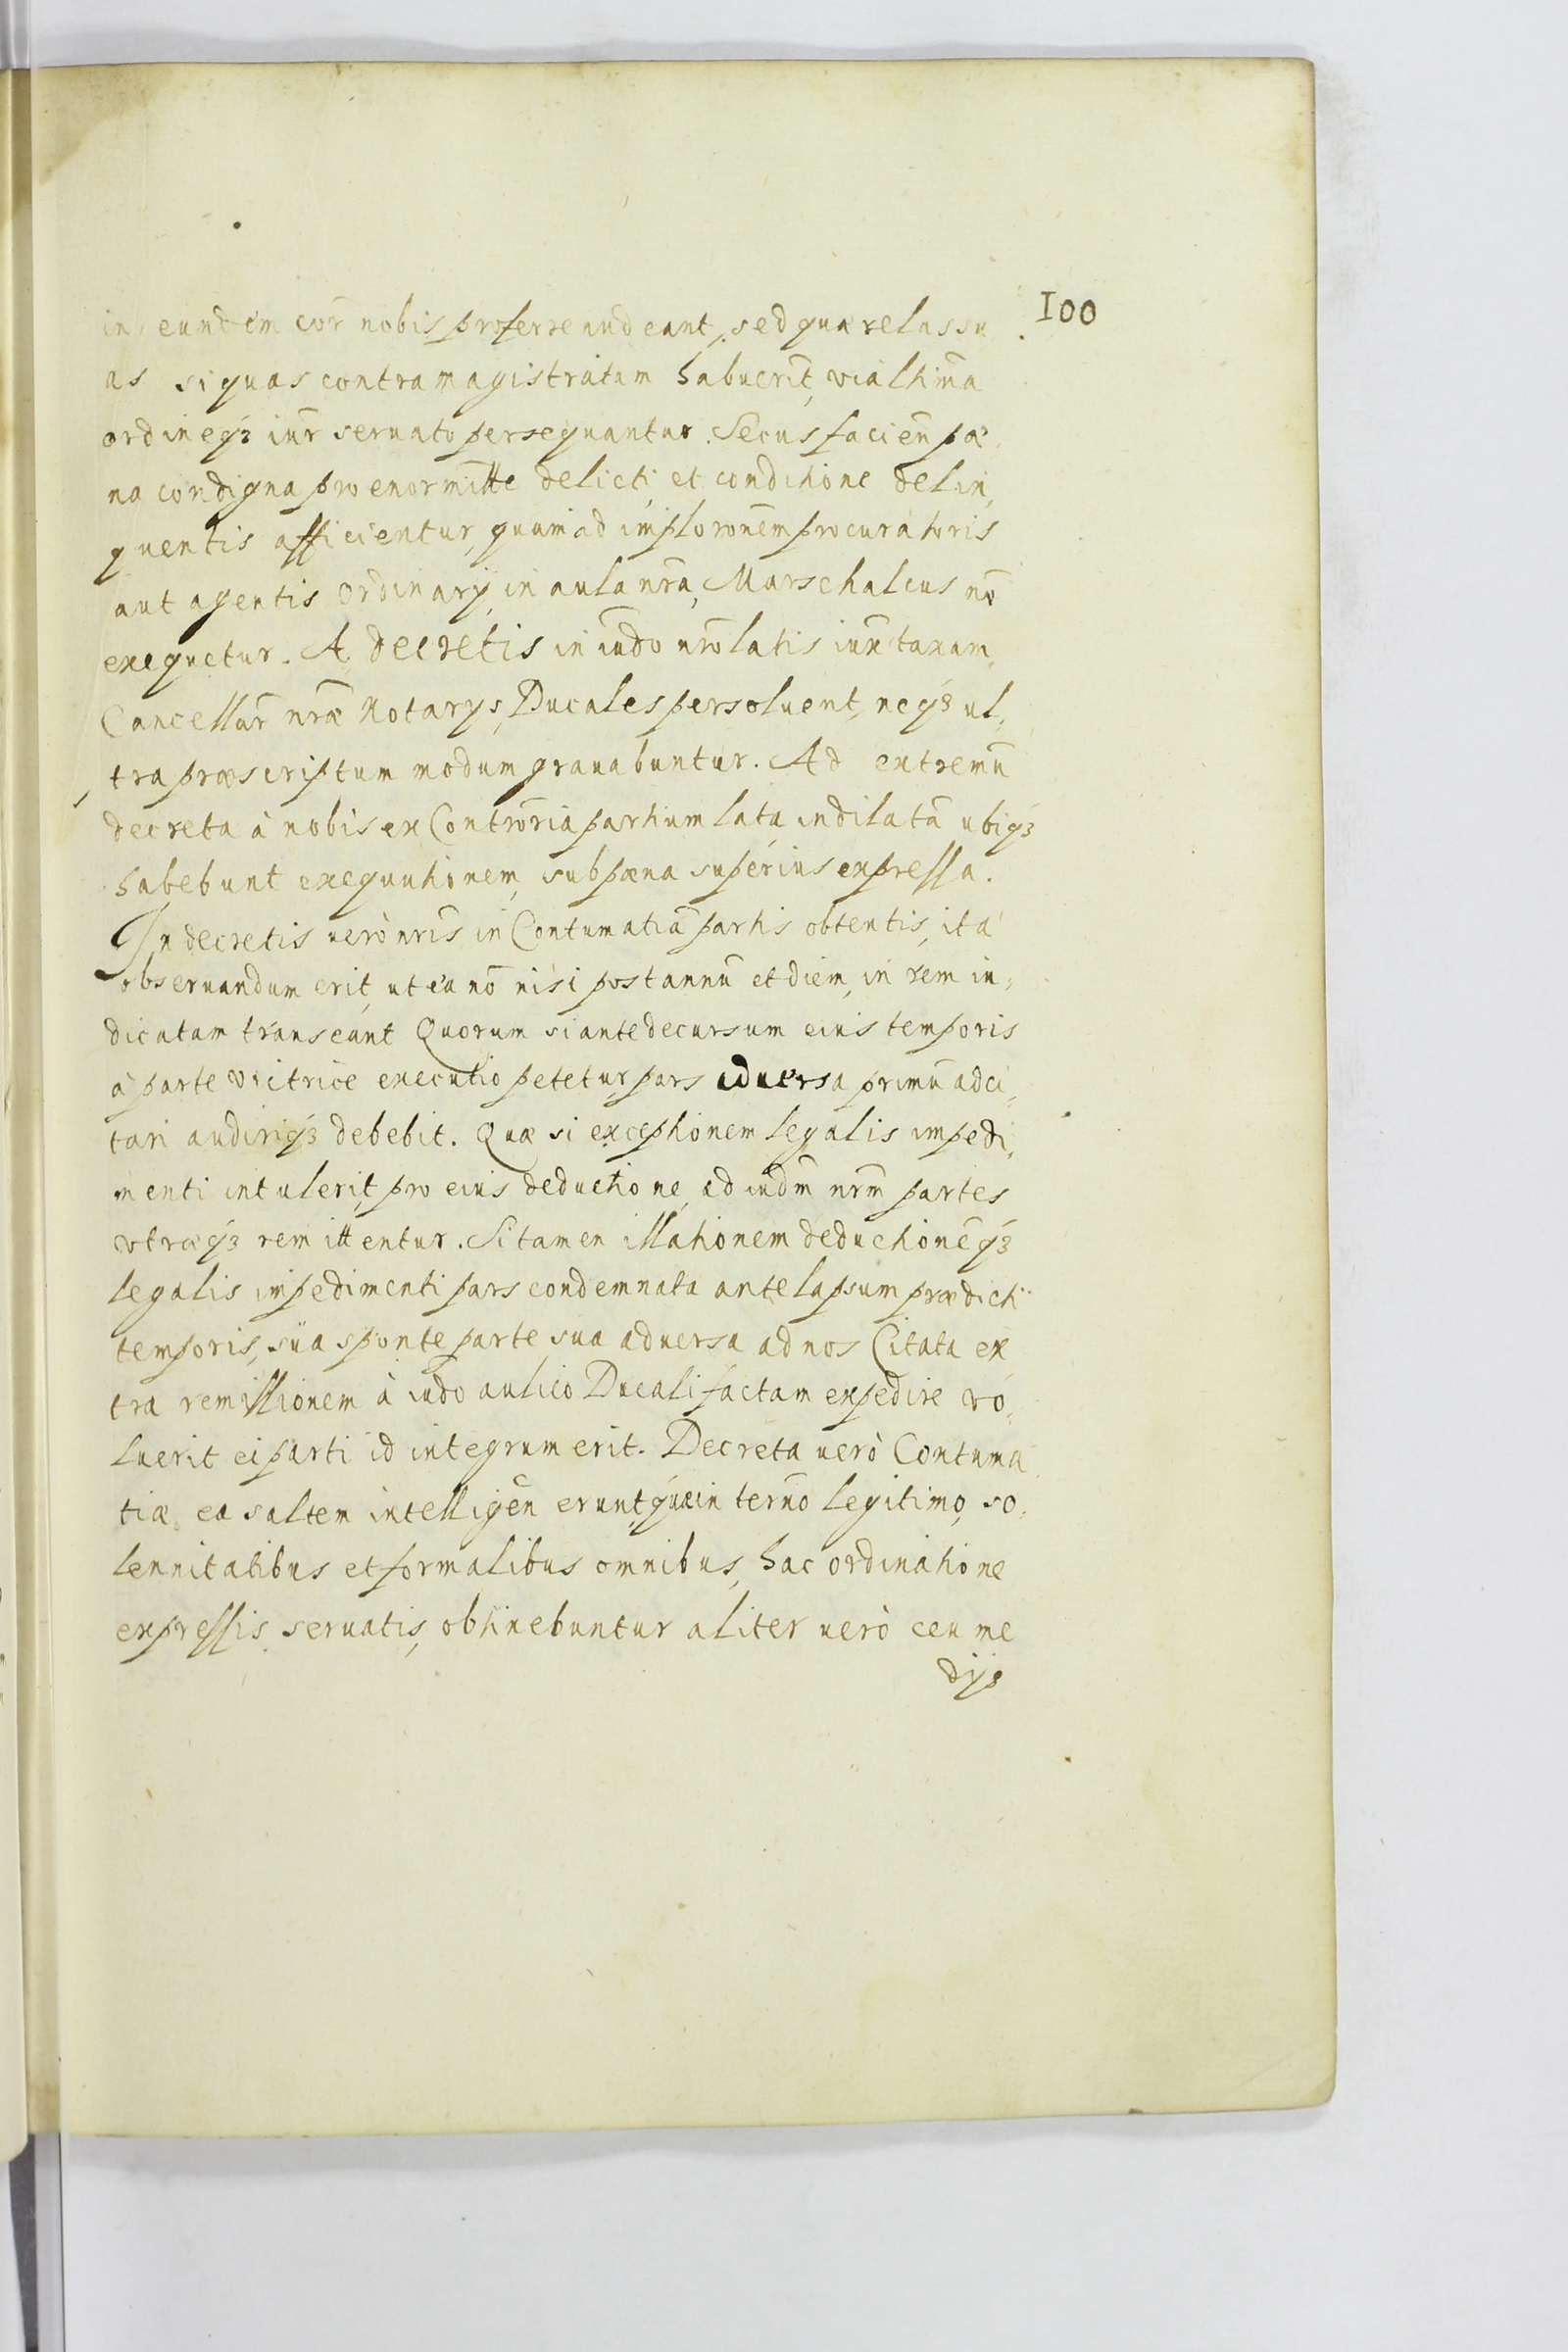 100
in eundem cor̃ nobis proferre audeant, sed quærelas su
as si quas contra magistratum habuerit, via lhima
ordineqz iur̃ seruato persequantur. Secus facien̄ pæ
na condigna pro enormitte delicti, et conditione delin,
quentis afficientur, quam ad imploronem procuratoris
aut agentis ordinarÿ, in aula nr̃a, Marschalcus nr̄
exequetur. A decretis in iudo nr̃o latis iux taxam
Cancellar̃ nr̃æ Notarÿs, Ducales persoluent, neqz ul,
tra præscriptum modum grauabuntur. Ad extremū
decreta à nobis ex Contro͞ria partium lata, indilatā ubiqz
habebunt exequutionem, sub pæna superius expressa.
In decretis uerò nr̃is in Contumatiā partis obtentis, ita
obseruandum erit, ut ea nō nisi post annū et diem, in rem iu,
dicatam transeant Quorum si ante decursum eius temporis
à parte victrice executio petetur, pars aduersa primū adci,
tari audiriqz debebit. Quæ si exceptionem legalis impedi,
menti intulerit, pro eius deductione, ad iudm̄ nr̃m partes
vtræqz remittentur. Si tamen illationem deductionēqz
legalis impedimenti pars condemnata ante lapsum prædicti
temporis, sua sponte parte sua aduersa ad nos Citata ex
tra remissionem à iudo aulico Ducali factam expedire vo,
luerit ei parti id integrum erit. Decreta uerò Contuma
tiæ ea saltem intelligen̄ erunt, quæ in termo legitimo, so,
lennitatibus et formalibus omnibus, hac ordinatione
expressis seruatis, obtinebuntur aliter uerò ceu me
dijs